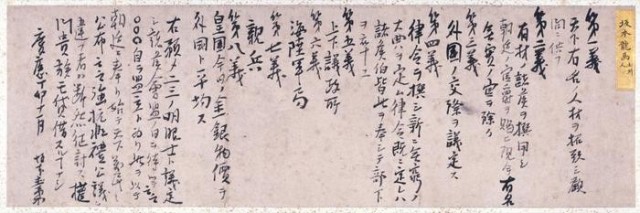 坂本龍馬
第一義
天下有名ノ人材ヲ招致シ顧
問ニ供フ
第二義
有材ノ諸侯ヲ撰用シ
朝廷ノ官爵ヲ賜ヒ現今有名
無実ノ官ヲ除ク
第三義
外国ノ交際ヲ議定ス
第四義
律令ヲ撰シ新ニ無窮ノ
大典ヲ定ム律令既ニ定レハ
諸侯伯皆此ヲ奉シテ部下
ヲ率ス
第五義
上下議政所
第六義
海陸軍局
第七義
親兵
第八義
皇国今日ノ金銀物価ヲ
外国ト平均ス
右預メ二三ノ明眼士ト議定
シ諸侯会盟ノ日ヲ待ツテ云云
○○○自ラ盟主ト為リ此ヲ以テ
朝廷ニ奉リ始テ天下萬民ニ
公布云云強抗非礼公議ニ
違フ者ハ断然征討ス権
門貴族モ貸借スルコトナシ
慶應丁卯十一月 坂本直柔